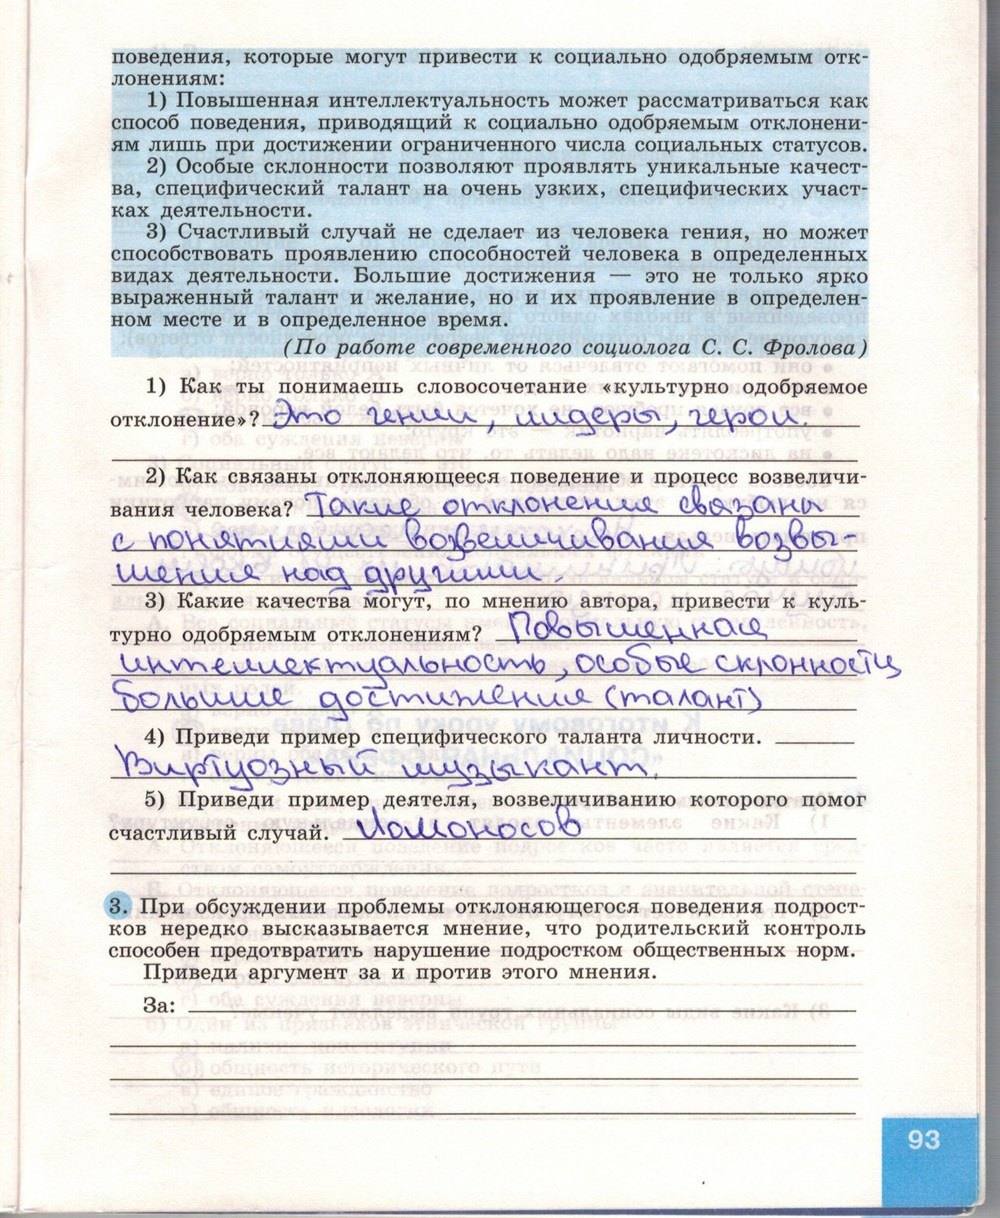 поведения, которые могут привести к социально одобряемым отк-
лонениям:
1) Повышенная интеллектуальность может рассматриваться как
способ поведения, приводящий к социально одобряемым отклонени-
ям лишь при достижении ограниченного числа социальных статусов.
2) Особые склонности позволяют проявлять уникальные качест-
ва, специфический талант на очень узких, специфических участ-
ках деятельности.
3) Счастливый случай не сделает из человека гения, но может
способствовать проявлению способностей человека в определенных
видах деятельности. Большие достижения — это не только ярко
выраженный талант и желание, но и их проявление в определен-
ном месте и в определенное время.
(По работе современного социолога С. С. Фролова)
1) Как ты понимаешь словосочетание «культурно одобряемое
отклонение»? Это гении, лидеры, герои.
2) Как связаны отклоняющееся поведение и процесс возвеличи-
вания человека? Такие отклонения связаны
с понятиями возвеличивания возвы-
шения над другими.
3) Какие качества могут, по мнению автора, привести к куль-
турно одобряемым отклонениям? Повышенная
интеллектуальность, особые склонности,
большие достижения (талант)
4) Приведи пример специфического таланта личности.
Виртуозный музыкант.
5) Приведи пример деятеля, возвеличиванию которого помог
счастливый случай. Ломоносов
3. При обсуждении проблемы отклоняющегося поведения подрост-
ков нередко высказывается мнение, что родительский контроль
способен предотвратить нарушение подростком общественных норм.
Приведи аргумент за и против этого мнения.
За:
93